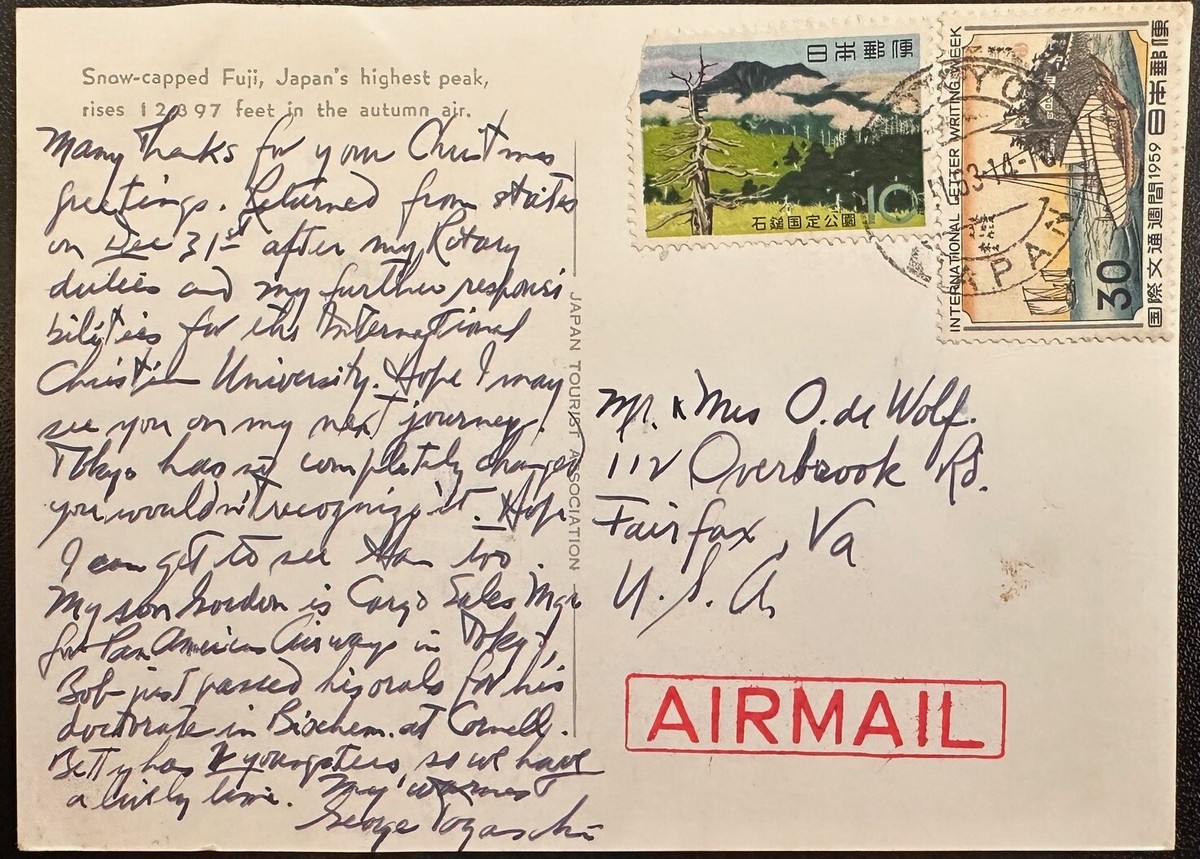 Snow-capped Fuji, Japan's highest peak,
rises 12,397 feet in the autumn air.
Many thanks for your Christmas
greetings. Returned from states
on Dec 31st after my Rotary
duties and my further responsi
bilities for the International
Christian University. Hope I may
see you on my next journey.
Tokyo has so completely changed
you wouldn't recognize it. Hope
I can get to see too.
My son Gordon is Cargo Sales Mgr
for Pan American Airways in Tokyo,
Bob just passed his orals for his
doctorate in Biochem. at Cornell.
Betty has youngsters, so we have
a lively time. My warmest
George Togasaki
JAPAN TOURIST ASSOCIATION
日本郵便
石鎚国定公園
10
INTERNATIONAL LETTER WRITING WEEK
30
国際文通週間 1959 日本郵便
JAPAN
Mr. & Mrs O. de Wolf.
112 Overbrook Rd.
Fairfax, Va
U.S.A.
AIRMAIL